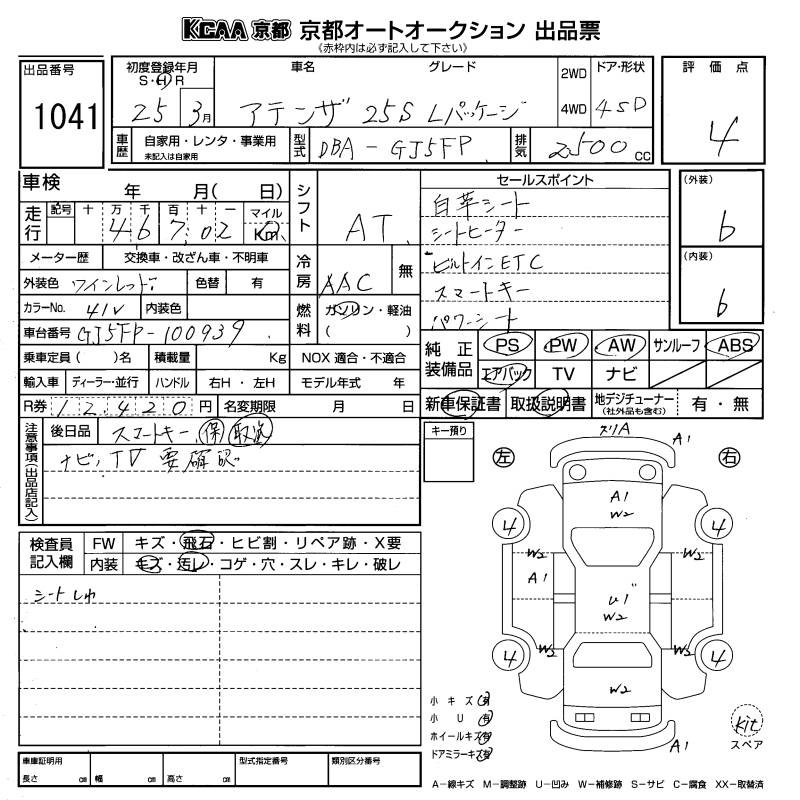 KCAA 京都 京都オートオークション 出品票
《赤枠内は必ず記入して下さい》
出品番号
1041
初度登録年月
S・H・R
25 3月
車名 グレード
アテンザ 25S Lパッケージ
2WD
4WD
ドア・形状
4SD
評価点
4
車歴
自家用・レンタ・事業用
未記入は自家用
型式
DBA-GJ5FP
排気
2500 cc
車検 年 月( 日)
走行
記号 十 万 千 百 十 一 マイル
4 6 7,02 Km
メーター歴 交換車・改ざん車・不明車
外装色 ワインレッド 色替 有
カラーNo. 41V 内装色
車台番号 GJ5FP-100939
乗車定員( )名 積載量 Kg
輸入車 ディーラー・並行 ハンドル 右H・左H
R券 12,420 円 名変期限 月 日
シフト
AT
冷房
AAC 無
燃料
ガソリン・軽油
( )
NOX 適合・不適合
モデル年式 年
セールスポイント
白革シート
シートヒーター
ビルトインETC
スマートキー
パワーシート
(外装)
b
(内装)
b
純正装備品
PS PW AW サンルーフ ABS
エアバック TV ナビ
新車保証書 取扱説明書 地デジチューナー
(社外品も含む)
有・無
注意事項(出品店記入)
後日品 スマートキー 保 取説
ナビ,TV 要確認
検査員記入欄
FW キズ・飛石・ヒビ割・リペア跡・X要
内装 キズ・汚レ・コゲ・穴・スレ・キレ・破レ
シートしわ
キー預り
左
右
スリA
A1
A1
W2
4
4
W2
W2
A1
U1"
W2
W2
W2
4
4
W2
A1
小キズ 有
小U 有
ホイールキズ 有
ドアミラーキズ 有
kit
スペア
車庫証明用
長さ cm 幅 cm 高さ cm
型式指定番号
類別区分番号
A-線キズ M-調整跡 U-凹み W-補修跡 S-サビ C-腐食 XX-取替済